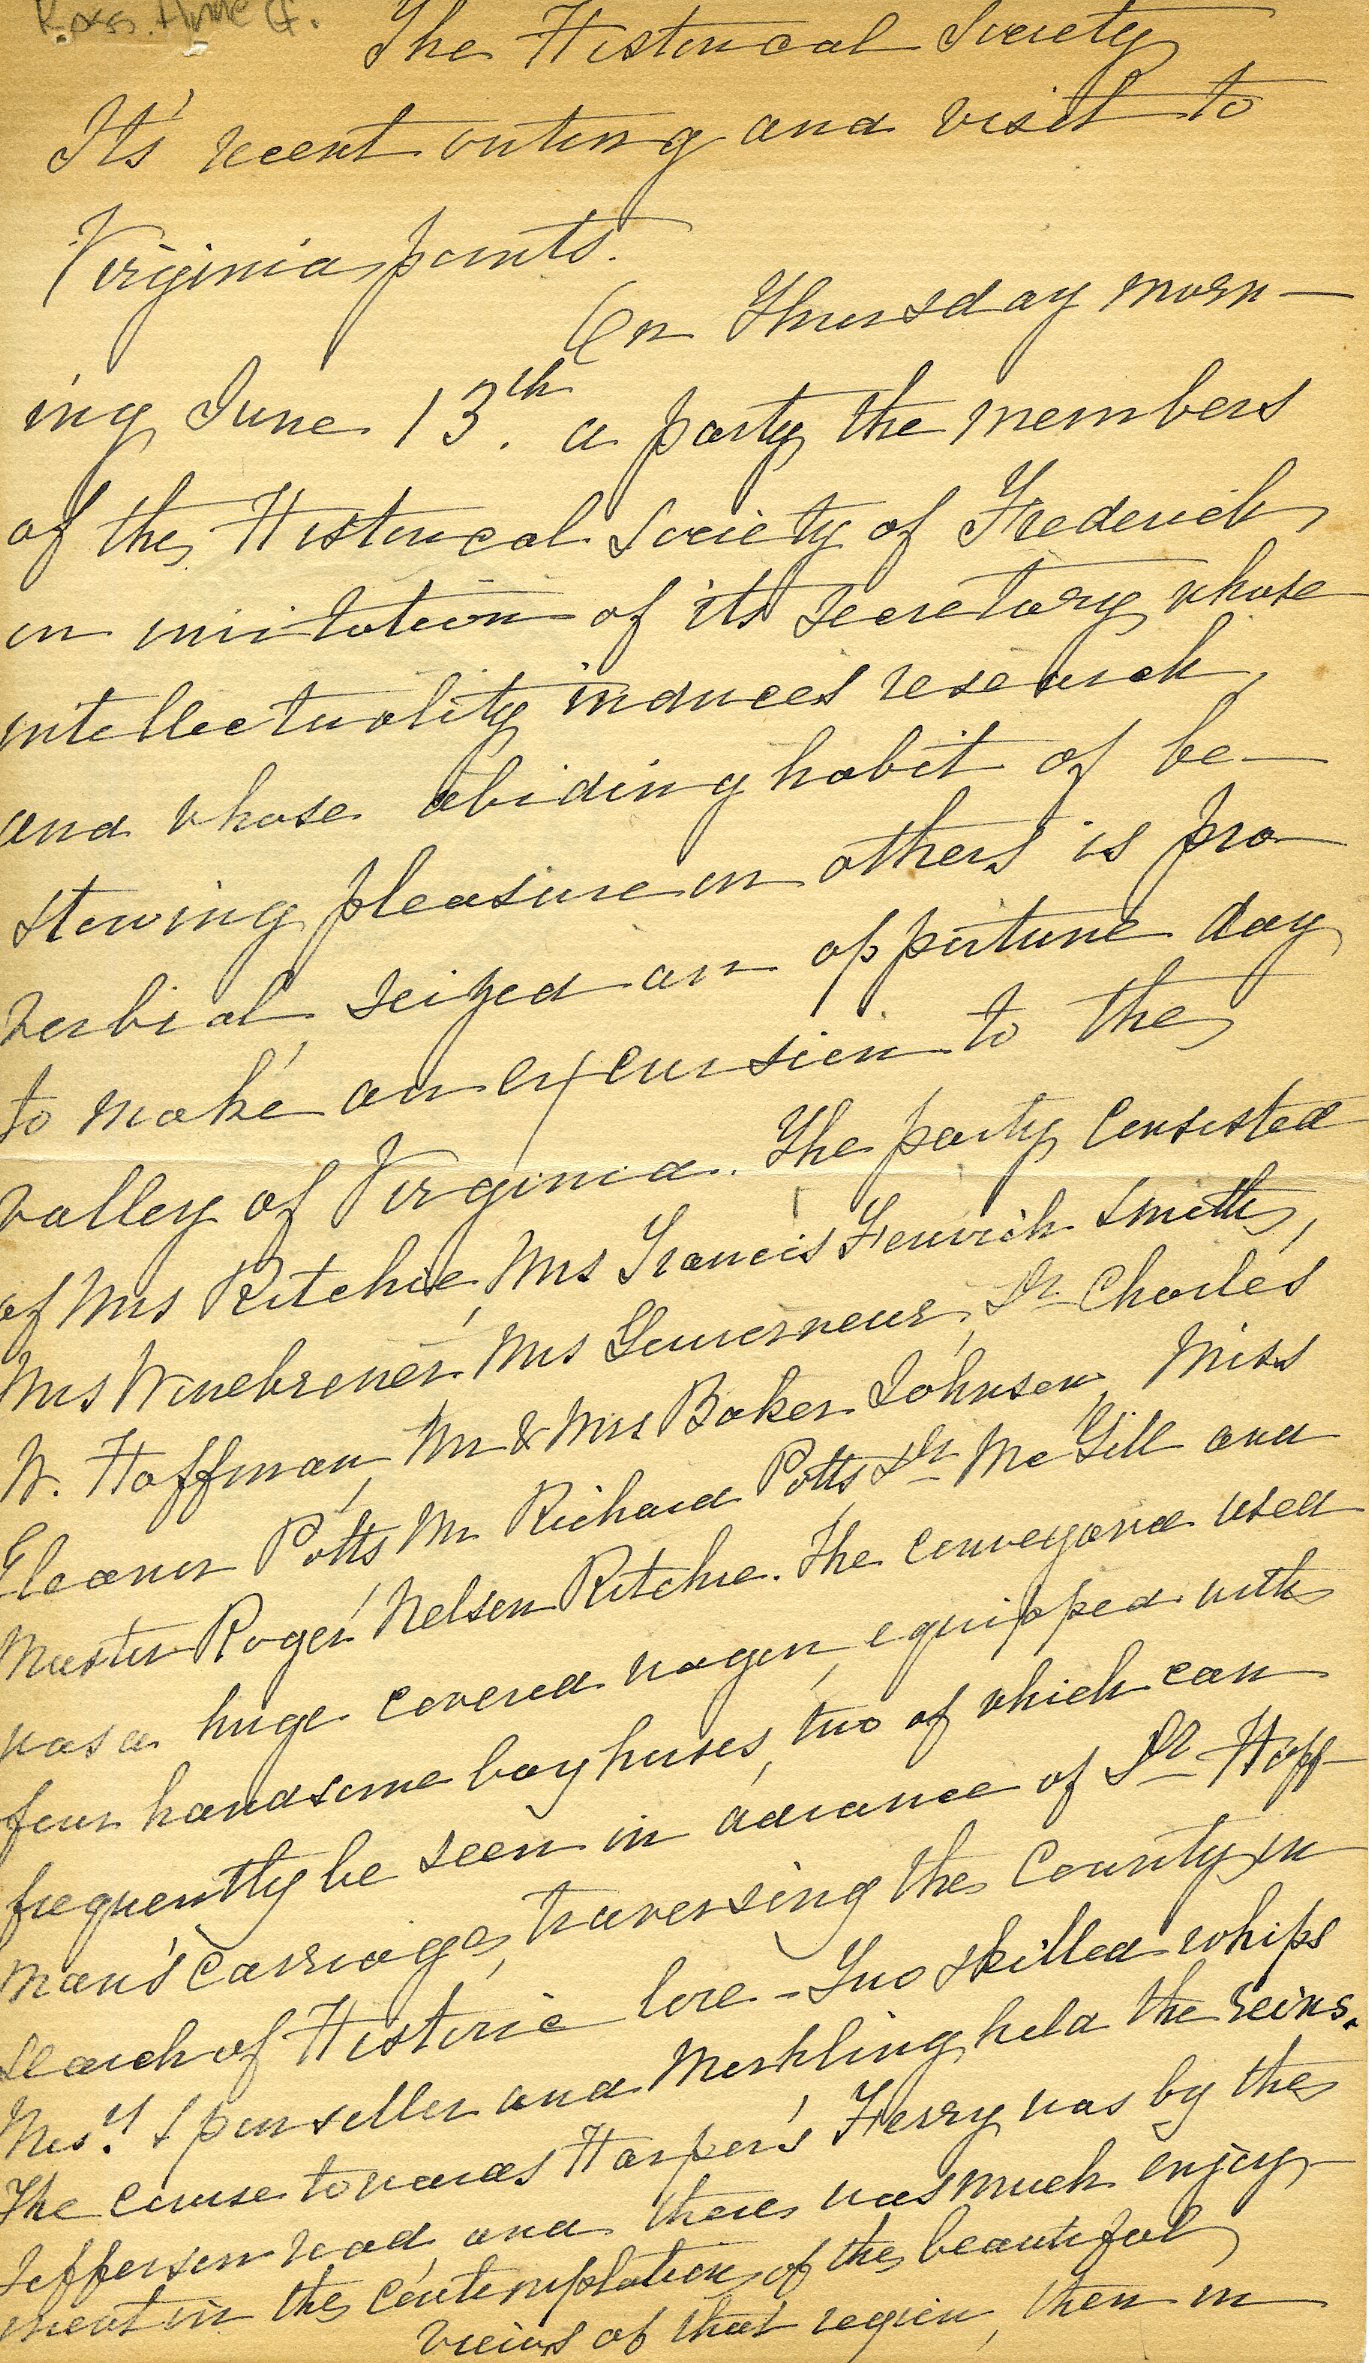 Ross. Anne G.
The Historical Society
It's recent outing and visit to
Virginia points.
On Thursday morn-
ing June 13th. a party the members
of the Historical Society of Frederick
on invitation of its Secretary whose
intellectuality induces research,
and whose abiding habit of be-
stowing pleasure on others is pro-
verbial, seized an opportune day
to make an excursion to the
valley of Virginia. The party consisted
of Mrs Ritchie, Mrs Francis Fenwick Smith,
Mrs Winebrener, Mrs Gouverneur, Dr Charles
W. Hoffman, Mr & Mrs Baker Johnson, Miss
Eleanor Potts, Mr Richard Potts, Dr McGill and
Master Roger Nelson Ritchie. The conveyance used
was a huge covered wagon, equipped with
four handsome bay horses, two of which can
frequently be seen in advance of Dr Hoff-
man's carriage, traversing the County in
search of Historic lore - Two skilled whips
Mes. Spurseller and Merkling held the reins.
The course towards Harper's Ferry was by the
Jefferson road, and there was much enjoy-
ment in the contemplation of the beautiful
views of that region, then in